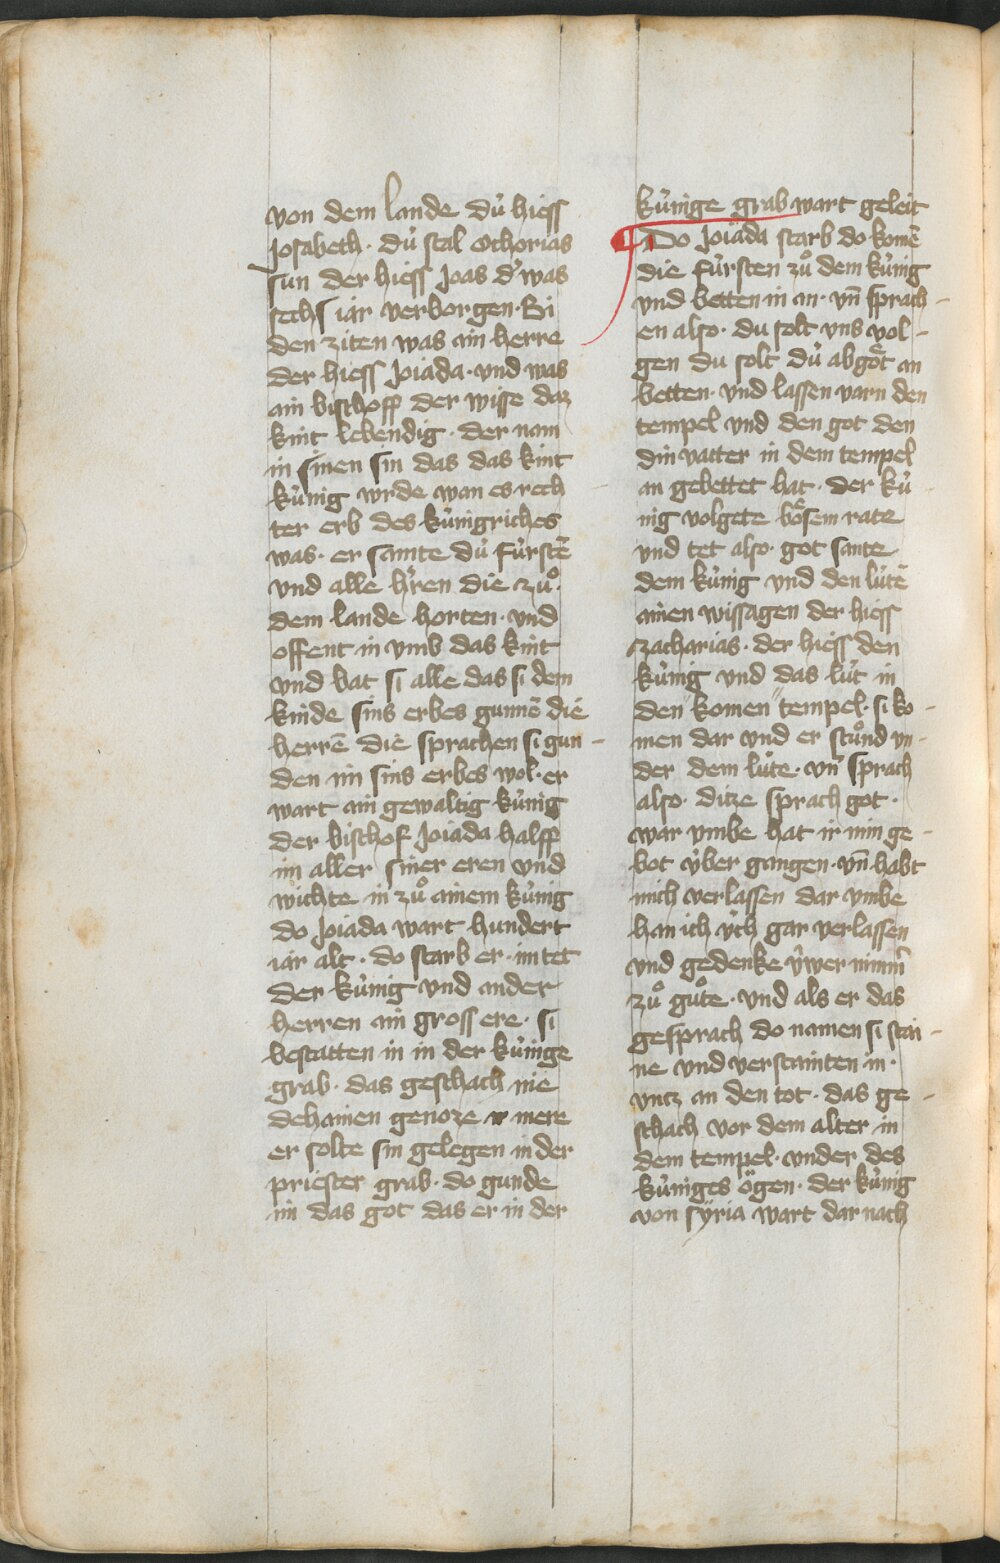 von dem lande dú hiess
Josabeth · dú stal Othorias
sun der hiess Joas d' was
sechs iar verborgen · Bi
den ziten was ain herre
der hiess Joiada · und was
ain bischoff der wisse daz
kint lebendig · der nam
in sinen sin das das kint
kúnig wrde wan es rech
ter erb des kúnigriches
was · er samte dú fúrstē
vnd alle h'ren die zuͦ
dem lande horten · vnd
offent in vmb das kint
vnd bat si alle das si dem
kinde sins erbes gunnē die
herrē die sprachen si gun -
den im sins erbes wol · er
wart ain gewaltig kúnig
der bischof Joiada halff
im aller siner eren vnd
wichte in zuͦ ainem kúnig
do Joiada wart hundert
iar alt · do starb er · im tet
der kúnig vnd ander
herren ain gross ere · si
bestatten in in der kúnige
grab · das geschach nie
dehainen genoze mere
er solte sin gelegen in der
priester grab · do gunde
im das got das er in der
kúnige grab wart geleit
Do Joiada starb do komē
die fúrsten zuͦ dem kúnig
vnd betten in an · vn̄ sprach -
en also · du solt vns vol -
gen du solt dú abgoͤt an
betten · vnd lassen varn den
tempel vnd den got den
din vatter in dem tempel
an gebettet hat · der kú -
nig volgete boͤsem rate
vnd tet also · got sante
dem kúnig vnd den lútē
ainen wissagen der hiess
zacharias · der hiess den
kúnig vnd das lút in
den " komen " tempel · si ko -
men dar vnd er stuͦnd vn -
der dem lúte · vn̄ sprach
also · ditze sprach got ·
war vmbe hat ir min ge -
bot úber gangen · vn̄ habt
mich verlassen dar vmbe
han ich úch gar verlassen
vnd gedenke úwer nimm̄
zuͦ guͦte · vnd als er das
gesprach do namen si stai -
ne vnd verstainten in ·
vntz an den tot · das ge -
schach vor dem alter in
dem tempel · vnder des
kúniges oͤgen · der kúnig
von sÿria wart dar nach